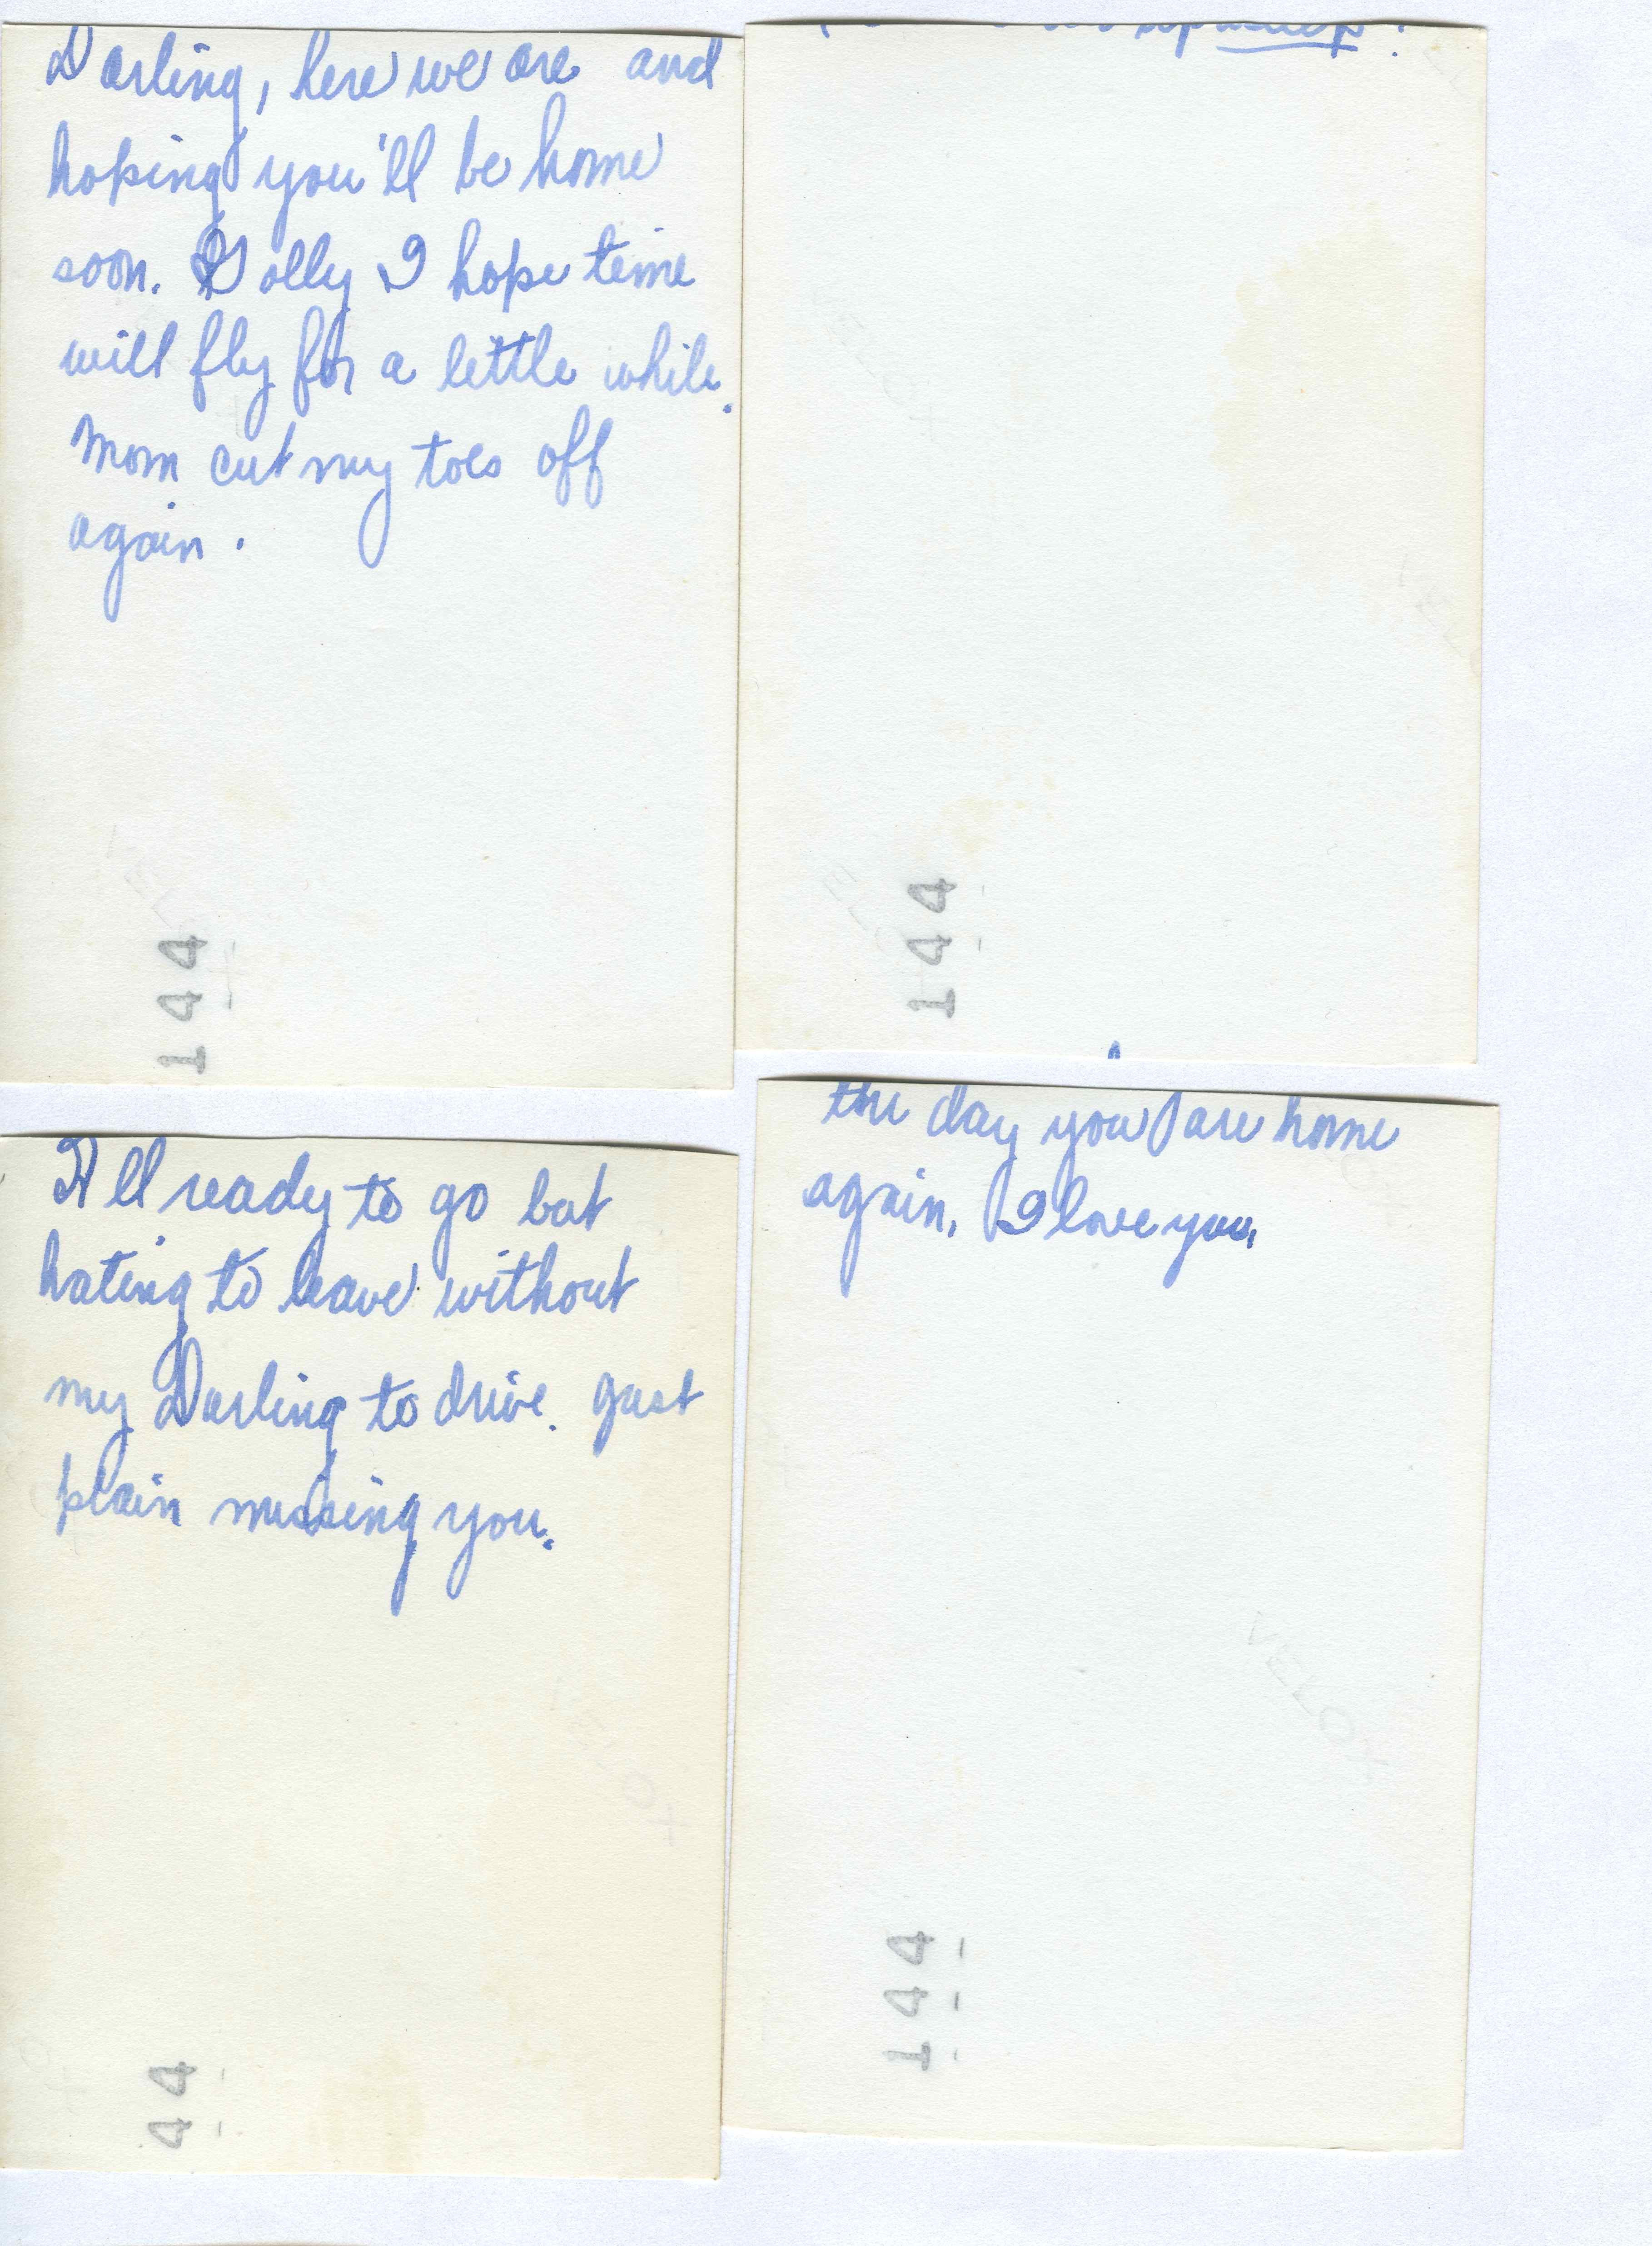 Darling, here we are and
hoping you'll be home
soon. Golly I hope time
will fly for a little while.
Mom cut my toes off
again.
144
144
All ready to go but
hating to leave without
my Darling to drive. Just
plain missing you.
44
the day you are home
again. I love you.
144